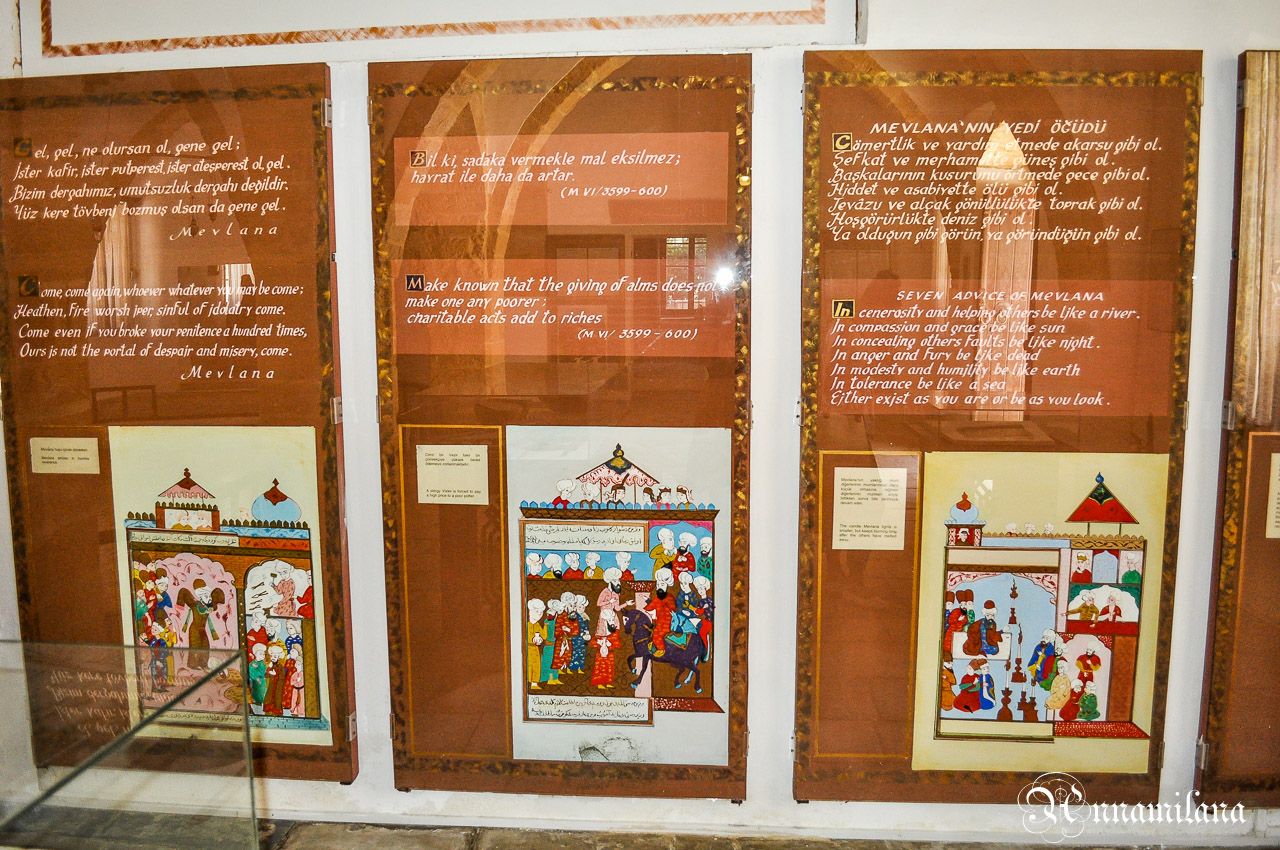 Gel, gel, ne olursan ol, gene gel;
İster kafir, ister putperest, ister ateşperest ol, gel.
Bizim dergahımız, umutsuzluk dergahı değildir.
Yüz kere tövbeni bozmuş olsan da gene gel.
Mevlana
Come, come again, whoever whatever you may be come;
Heathen, fire worshiper, sinful of idolatry come.
Come even if you broke your penitence a hundred times,
Ours is not the portal of despair and misery, come.
Mevlana
Bil ki, sadaka vermekle mal eksilmez;
hayrat ile daha da artar.
(M VI/3599-600)
Make known that the giving of alms does not
make one any poorer:
charitable acts add to riches
(M VI/ 3599-600)
MEVLANA'NIN YEDİ ÖĞÜDÜ
Cömertlik ve yardım etmede akarsu gibi ol.
Şefkat ve merhamette güneş gibi ol.
Başkalarının kusurunu örtmede gece gibi ol.
Hiddet ve asabiyette ölü gibi ol.
Tevâzu ve alçak gönüllülükte toprak gibi ol.
Hoşgörürlükte deniz gibi ol.
Ya olduğun gibi görün, ya göründüğün gibi ol.
SEVEN ADVICE OF MEVLANA
In cenerosity and helping others be like a river.
In compassion and grace be like sun
In concealing others faults be like night.
In anger and fury be like dead
In modesty and humility be like earth
In tolerance be like a sea
Either exist as you are or be as you look.
A clergy Vizier is forced to pay
a high price to a poor potter.
The candle Mevlana lights is
smaller, but keeps burning long
after the others have melted
away.
Annamilana